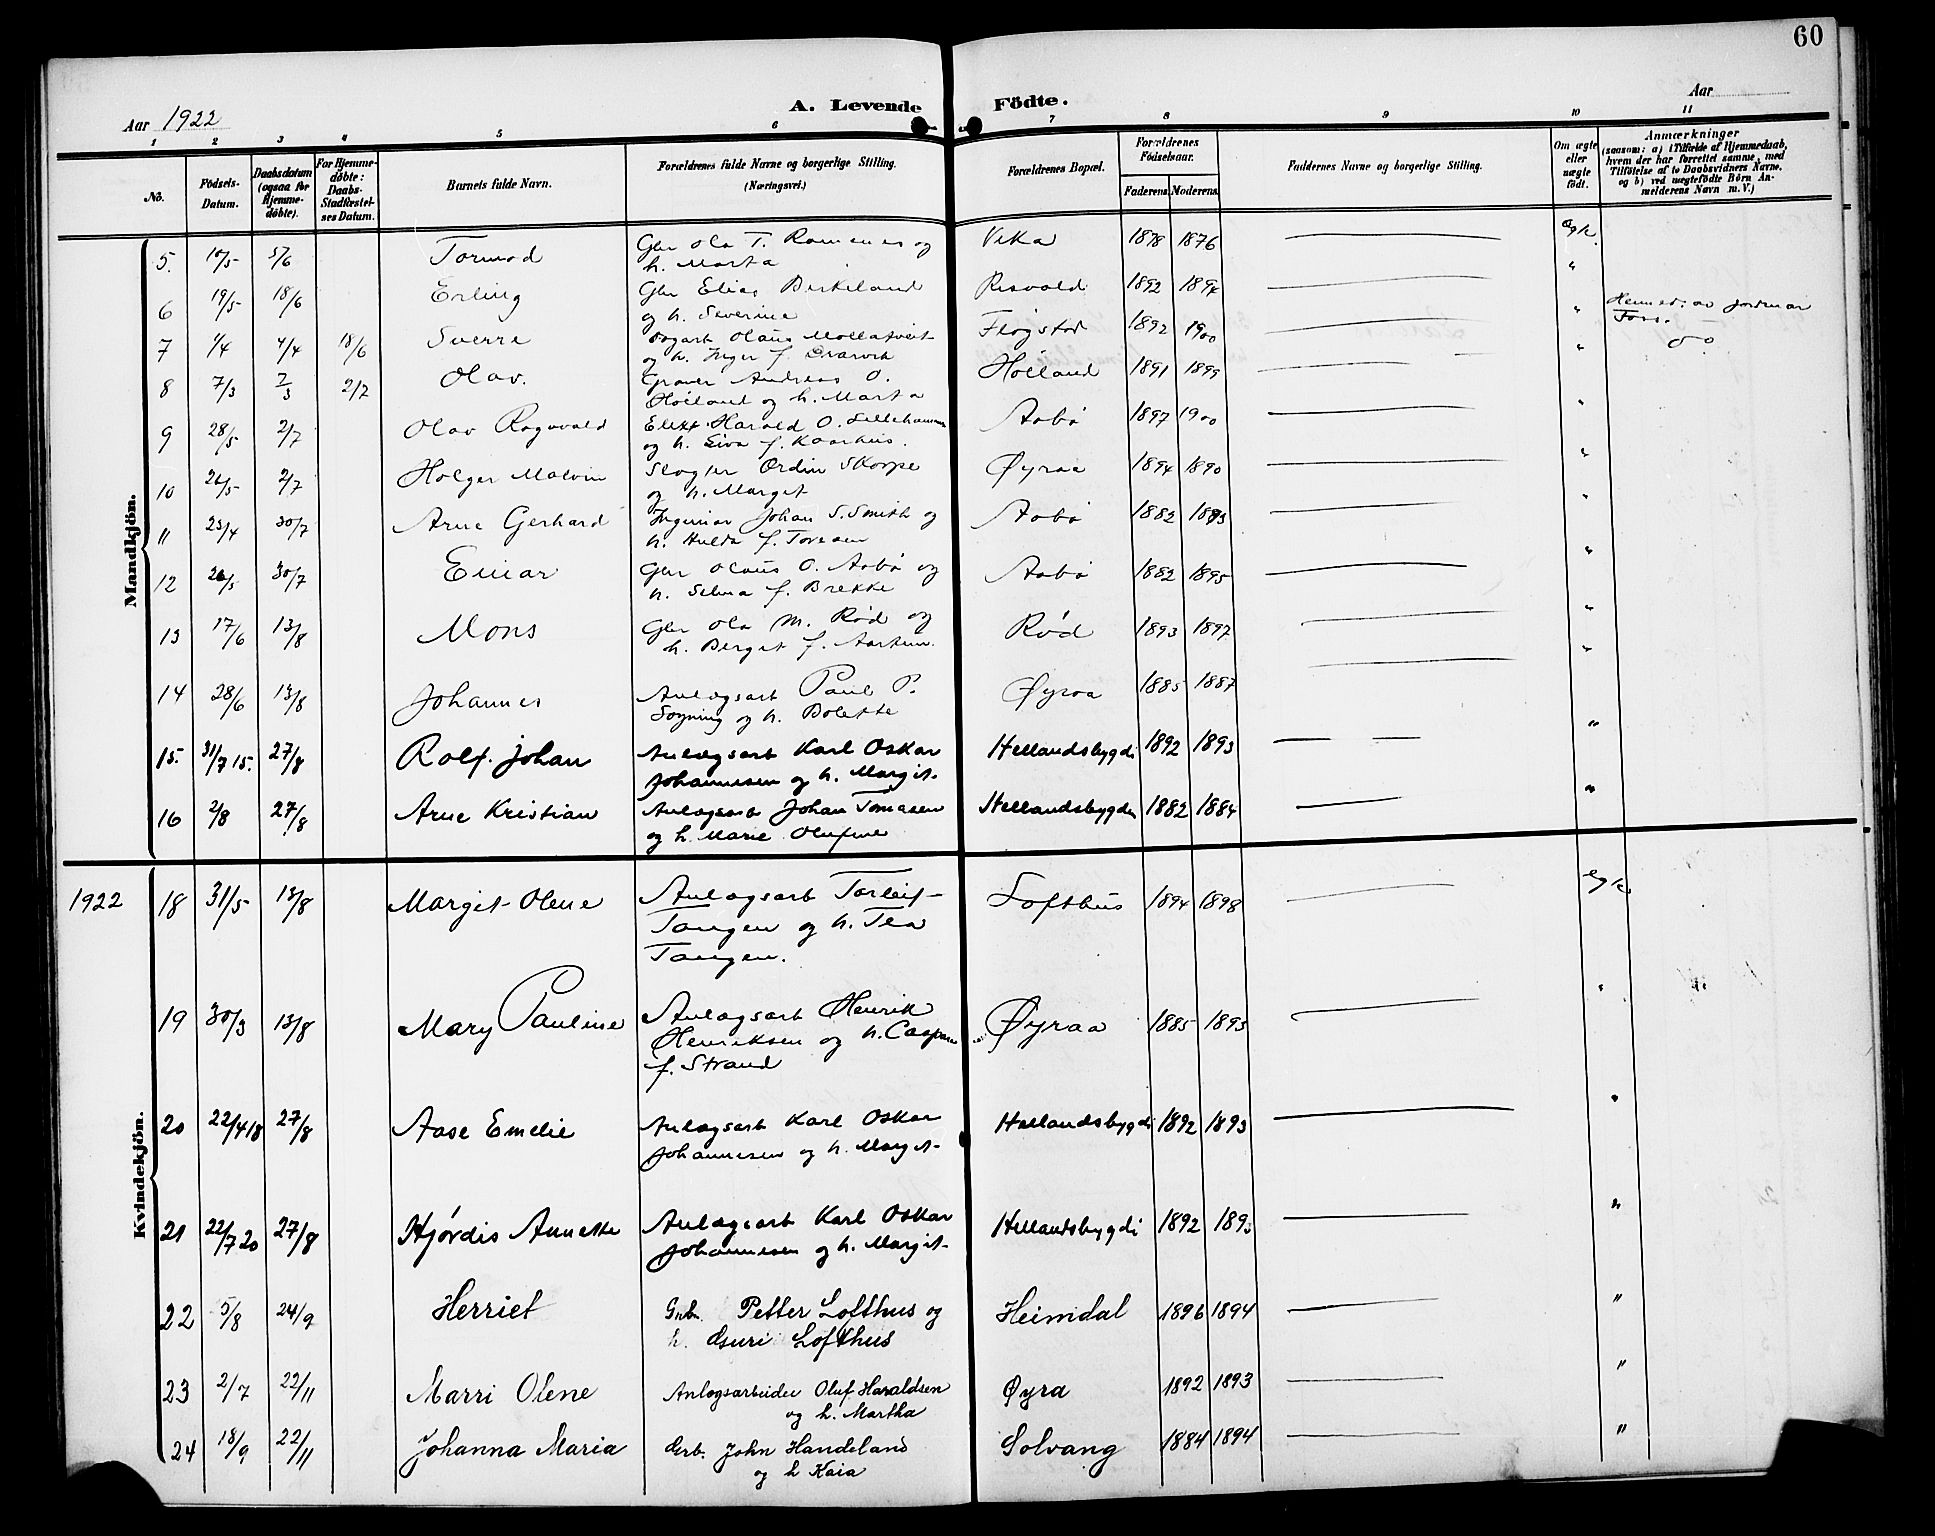 60
A. Levende Födte.
Aar 1922
Aar
1 2 3 4 5 6 7 8 9 10 11
Nô. Födsels-Datum. Daabsdatum (ogsaa for Hjemme-döbte). For Hjemme-döbte: Daabs-Stadfæstelses Datum. Barnets fulde Navn. Forældrenes fulde Navne og borgerlige Stilling. (Næringsvei.) Forældrenes Bopæl. Forældrenes Födselsaar. Faderens. Moderens. Faddernes Navne og borgerlige Stilling. Om ægte eller uægte födt. Anmærkninger (saasom: a) i Tilfælde af Hjemmedaab, hvem der har forrettet samme, med Tilföielse af to Daabsvidners Navne. og b) ved uægtefödte Börn Anmelderens Navn m. V.)
Mandkjön.
5. 5/6 Tormod Gbr Ola T. og h. Marta Vika 1878 1876
6 19/5 18/6 Erling Gbr Elias Birkeland og h. Severine Risvold 1892 1894 "
7 1/4 4/4 18/6 Sverre Olaus og h. Inger f. 1892 1900 "
8 7/3 7/3 2/7 Olav. Andreas O. Höiland og h. Marta Höiland 1891 1899 "
9 28/5 2/7 Olav Ragnvald Harald O. og h. f. Kaarhus. Aabö 1897 1900 "
10 26/5 2/7 Holger Malvin Ordin Skorpe og h. Marget Øyraa 1894 1890 "
11 23/4 30/7 Arne Gerhard Johan S. Smith og h. Hulda f. Aabö 1882 1883 "
12 26/5 30/7 Einar Gbr Olaus O. Aabö og h. Selma f. Brekke Aabö 1882 1895 "
13 17/6 13/8 Mons Gbr Ola M. Röd og h. Berget f. Röd 1893 1897 "
14 28/6 13/8 Johannes Anlægsarb Paul P. Sogning og h. Bolette Øyraa 1885 1887 "
15. 31/7 15. 27/8 Rolf. Johan Anlægsarb Karl Oskar Johannesen og h. Margit. Hellandsbygdi 1892 1893 "
16 2/8 27/8 Arne Kristian Anlægsarb Johan Tomasen og h. Marie Olufine Hellandsbygdi 1882 1884 "
Kvindekjön.
1922 18 31/5 13/8 Margit Olene Anlægsarb Torleif Tangen og h. Tea Tangen. Lofthus 1894 1898
19 30/3 13/8 Mary Pauline Anlægsarb Henrik Henriksen og h. f. Strand Øyraa 1885 1893 "
20 22/4 18 27/8 Aase Emelie Anlægsarb Karl Oskar Johannesen og h. Margit Hellandsbygdi 1892 1893 "
21 22/7 20 27/8 Hjördis Annette Anlægsarb Karl Oskar Johannesen og h. Margit Hellandsbygdi 1892 1893 "
22 5/8 24/9 Herriet Petter Lofthus og h. Guri Lofthus Heimdal 1896 1894 "
23 2/7 22/11 Marri Olene Anlegsarbeider Oluf Haraldsen og h. Martha Øyra 1892 1893 "
24 18/9 22/11 Johanna Maria Grb. John Handeland og h Kaia Solvang 1884 1894 "